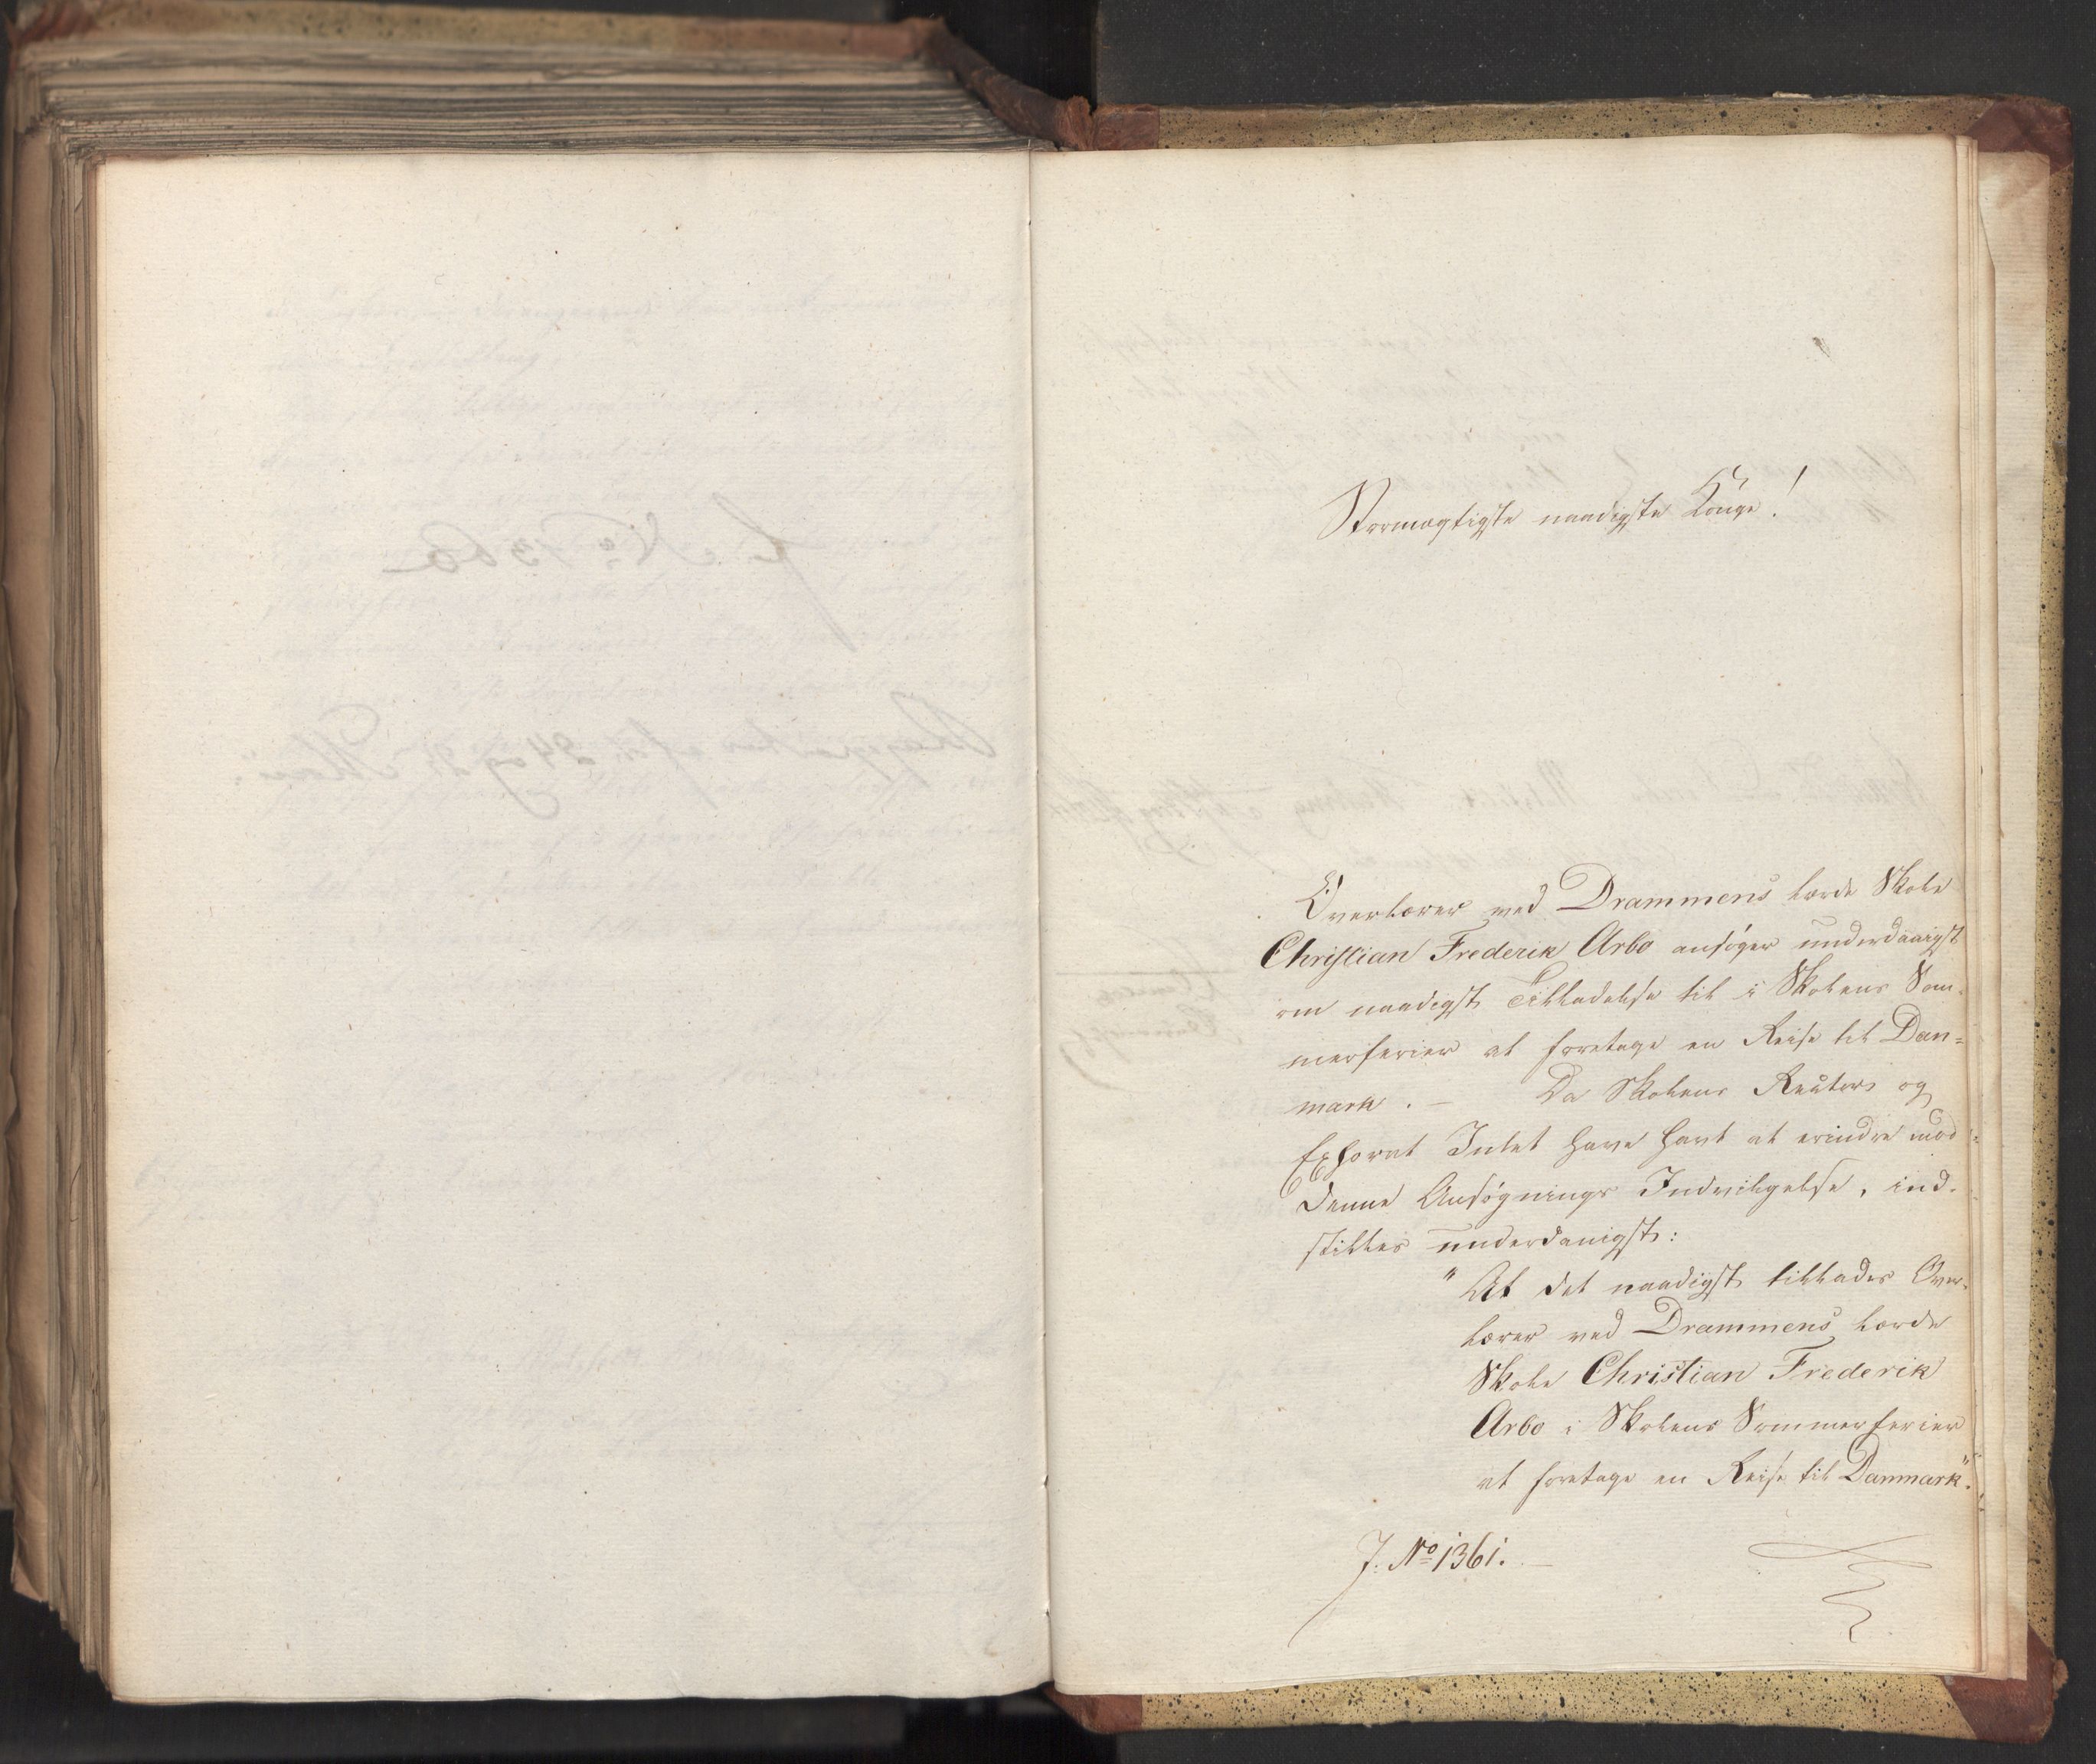 Stormægtigste naadigste Konge!
Overlærer ved Drammens lærde Skole
Christian Frederik Arbo ansøger underdanigst
om naadigst Tilladelse til i Skolens Som-
merferier at foretage en Reise til Dan=
mark. – Da Skolens Rector og
Ephorat Intet have havt at erindre mod
denne Ansøgnings Indvilgelse, ind-
stilles underdanigst:
"At det naadigst tillades Over-
lærer ved Drammens lærde
Skole Christian Frederik
Arbo i Skolens Sommerferier
at foretage en Reise til Danmark".
J. No 1361. –